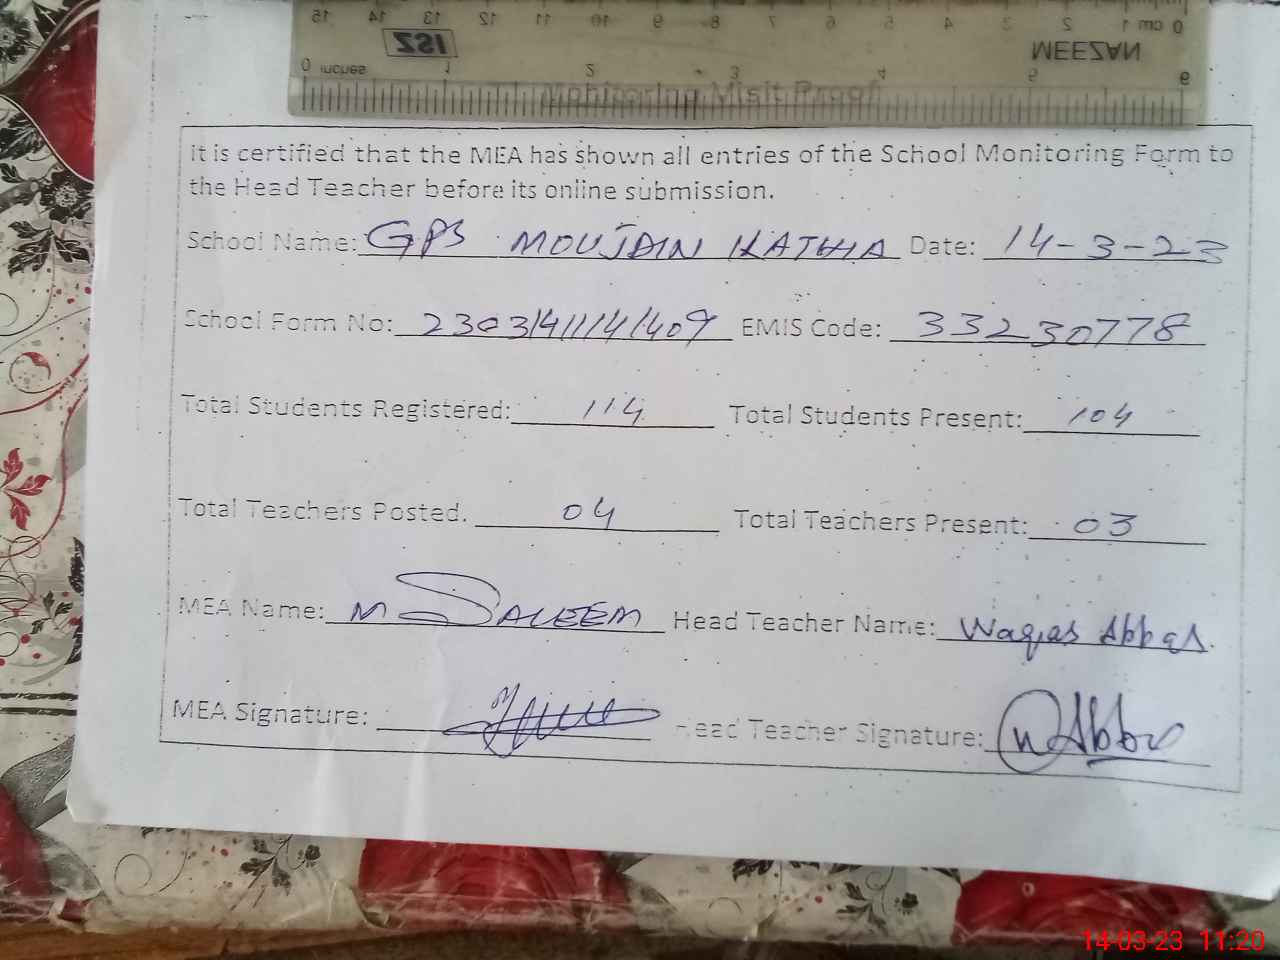 15 14 13 12 11 10 9 8 7 6 5 4 3 2 1 cm 0
ISI
MEEZAN
0 inches 1 2 3 4 5 6
Monitoring Visit Proof
it is certified that the MEA has shown all entries of the School Monitoring Form to
the Head Teacher before its online submission.
School Name: GPS MOUJDIN KATHIA Date: 14-3-23
School Form No: EMIS Code: 33230778
Total Students Registered: 114 Total Students Present: 104
Total Teachers Posted. 04 Total Teachers Present: 03
MEA Name: M SALEEM Head Teacher Name: Waqas Abbas.
MEA Signature: Head Teacher Signature: W Abbas
14-03-23 11:20